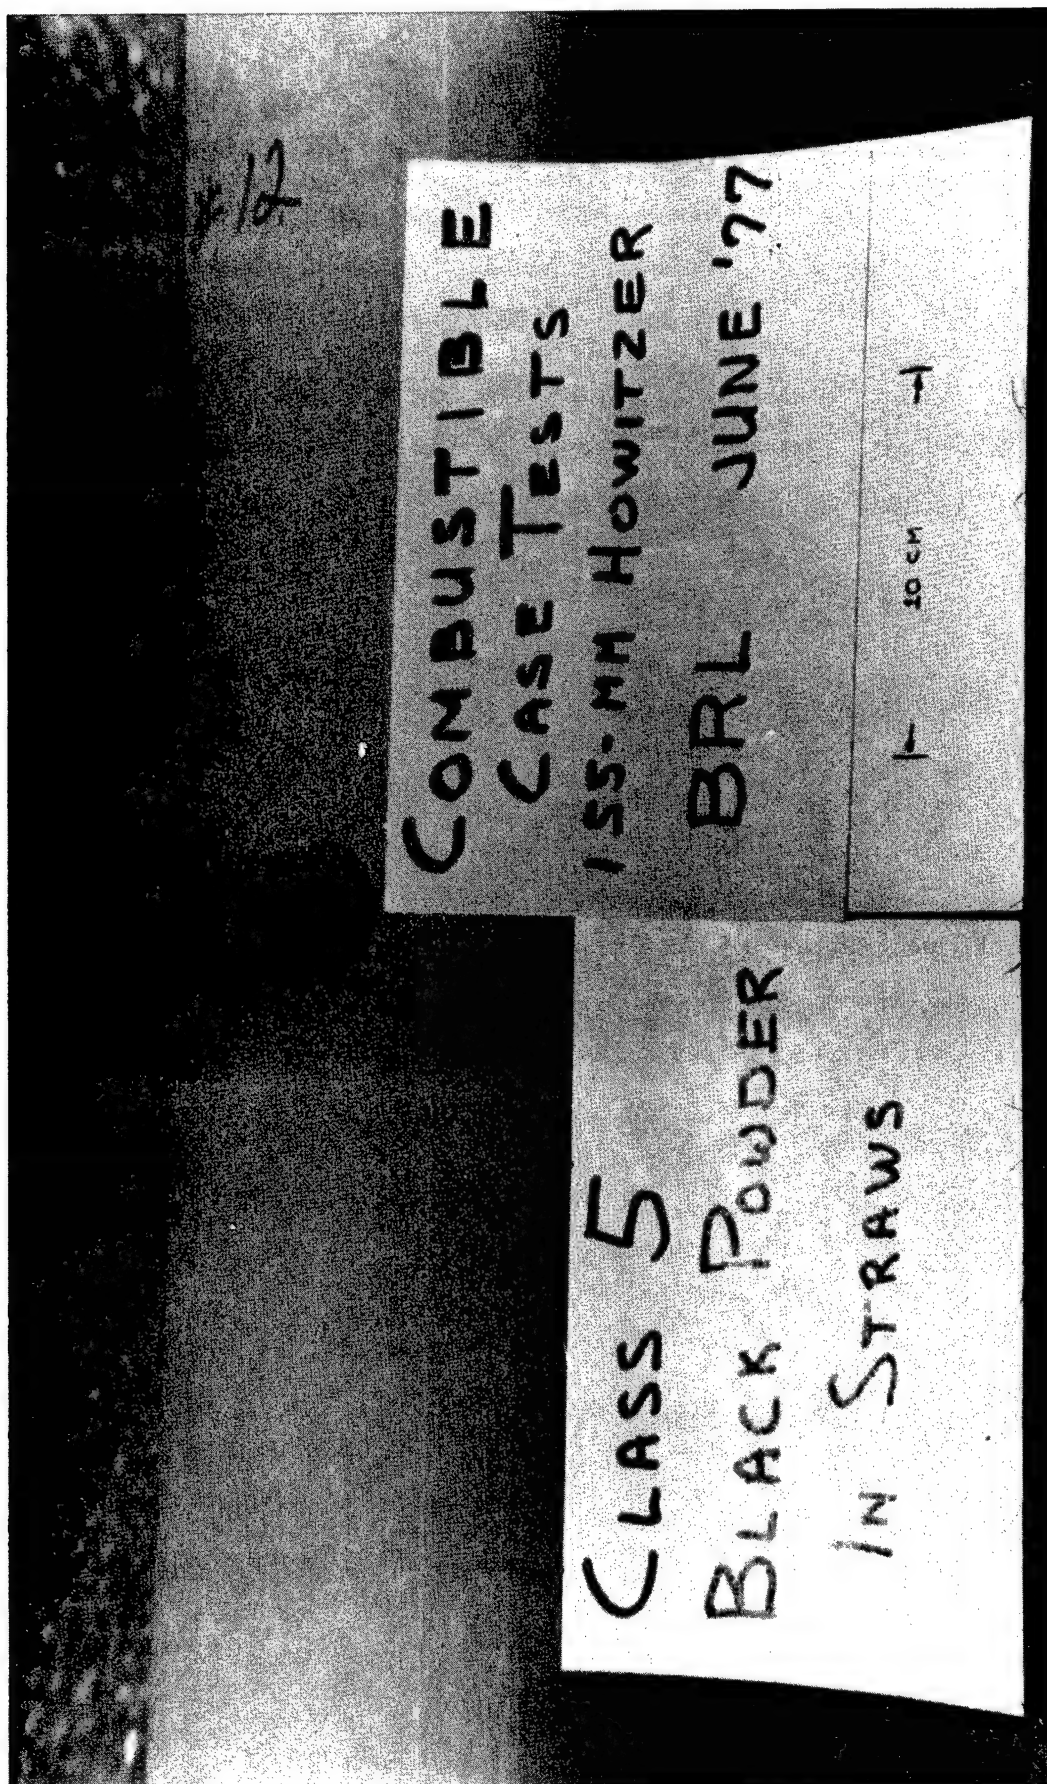 12
COMBUSTIBLE
CASE TESTS
155-MM HOWITZER
BRL JUNE '77
10 CM
CLASS 5
BLACK POWDER
IN STRAWS